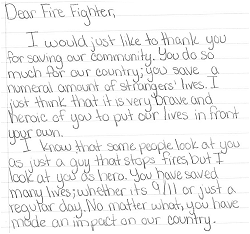 Dear Fire Fighter,
I would just like to thank you
for saving our community. You do so
much for our country; you save a
numeral amount of strangers' lives. I
just think that it is very brave and
heroic of you to put our lives in front
your own.
I know that some people look at you
as just a guy that stops fires, but I
look at you as hero. You have saved
many lives; whether its 9/11 or just a
regular day. No matter what, you have
made an impact on our country.